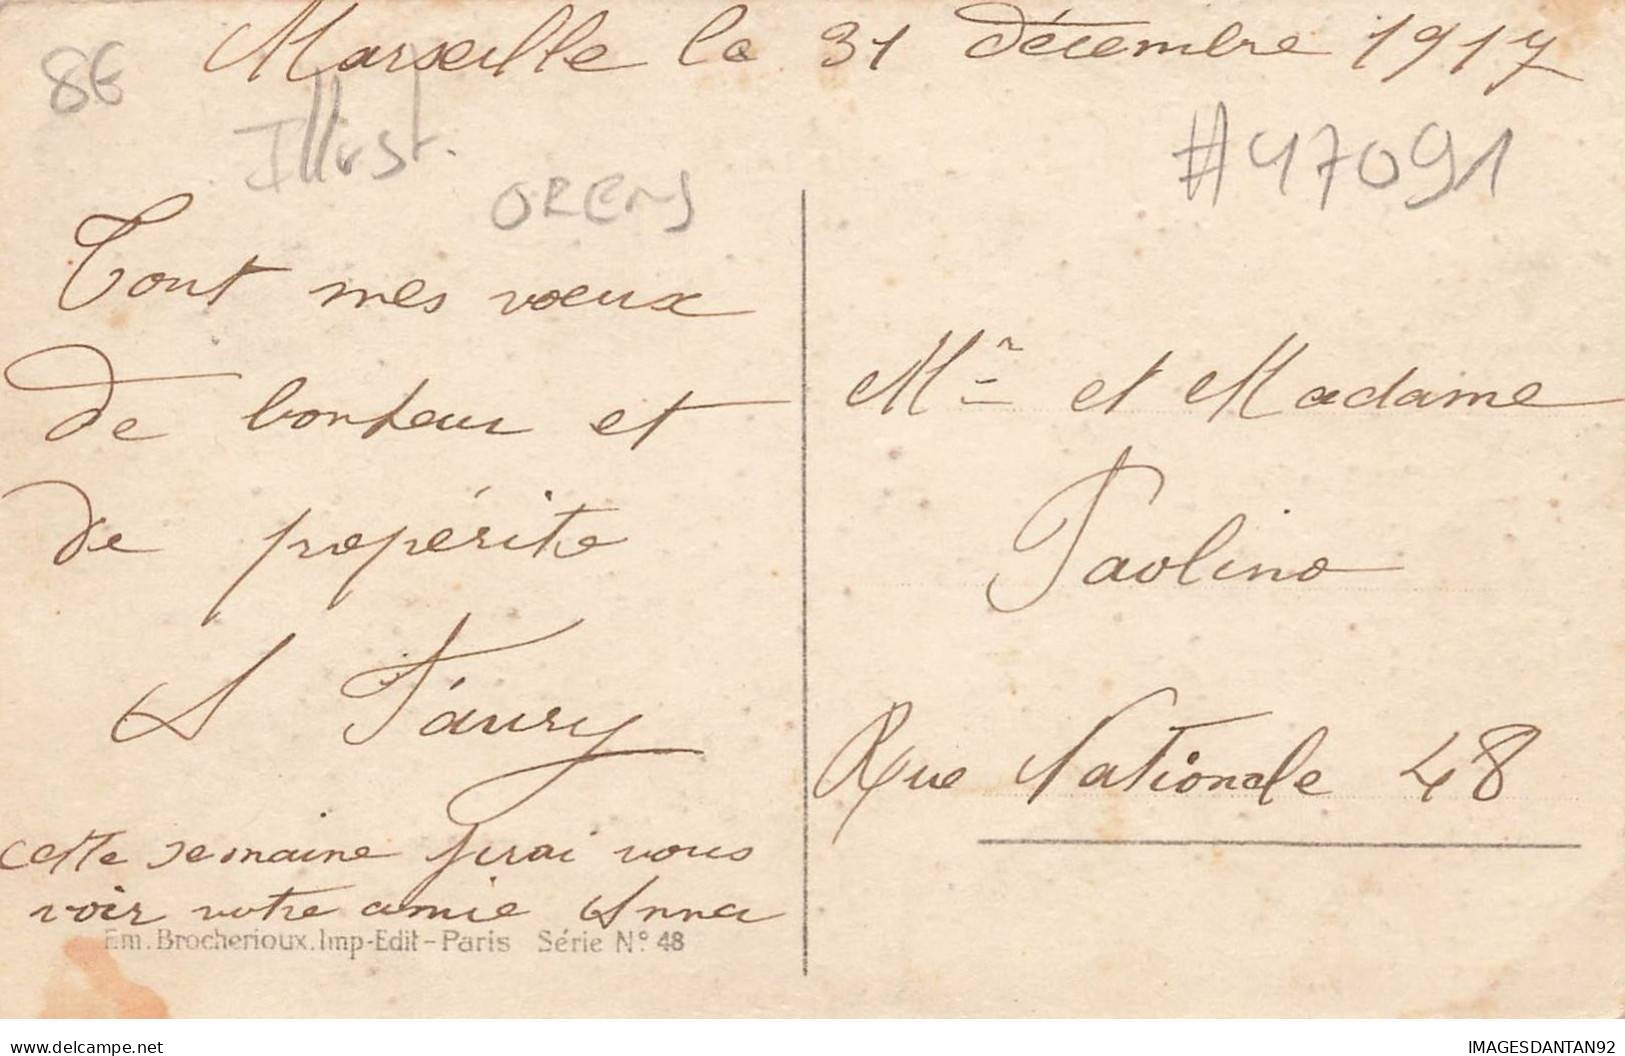 Marseille le 31 décembre 1917
8€
Illust.
ORENS
#47091
Tout mes vœux
de bonheur et
de propérite
A Fáury
cette semaine j'irai vous
voir votre amie Anna
Em. Brocherioux. Imp-Edit-Paris Série N° 48
Mr et Madame
Paolino
Rue Nationale 48
delcampe.net
IMAGESDANTAN92